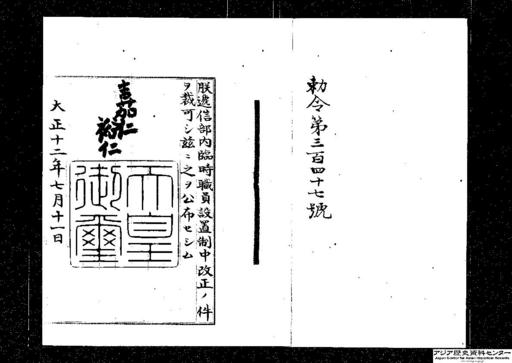 勅令第三百四十七號
朕遞信部内臨時職員設置制中改正ノ件
ヲ裁可シ茲ニ之ヲ公布セシム
嘉仁
裕仁
天皇御璽
大正十二年七月十一日
アジア歴史資料センター
Japan Center for Asian Historical Records